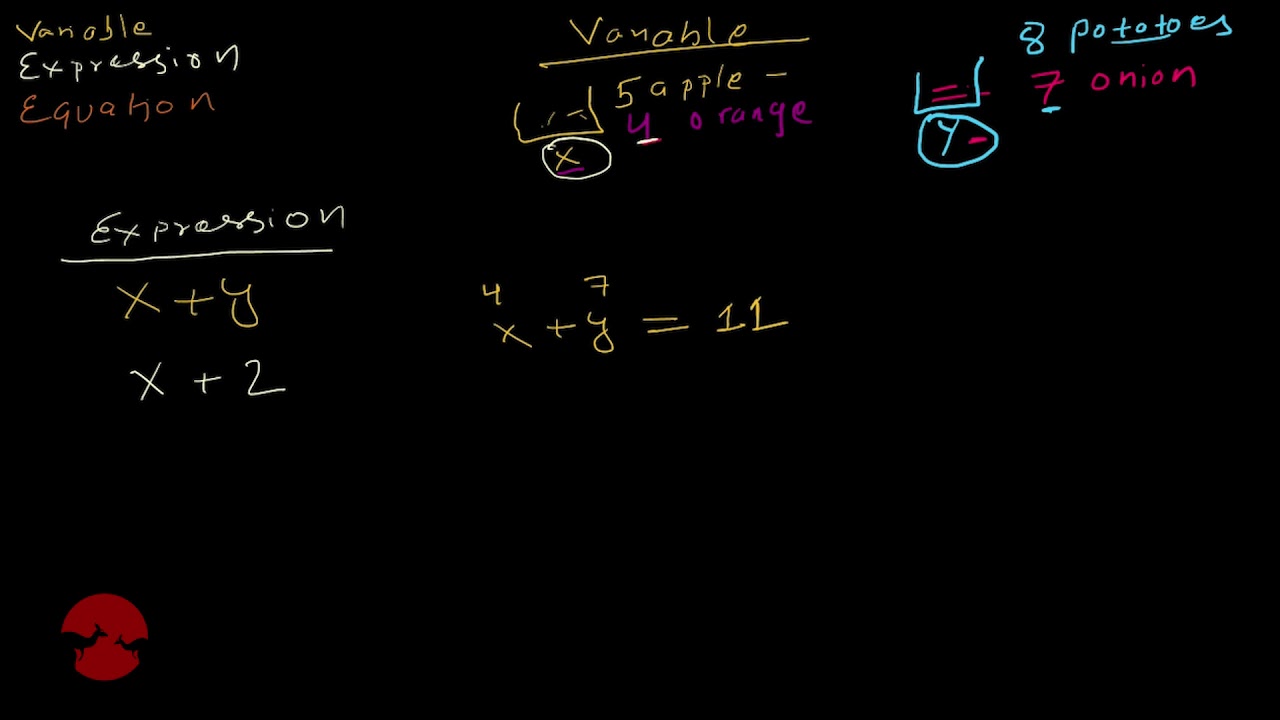 Variable
Expression
Equation
Variable
5 apple -
4 orange
x
8 potatoes
7 onion
y
Expression
x + y
x + 2
4 7
x + y = 11